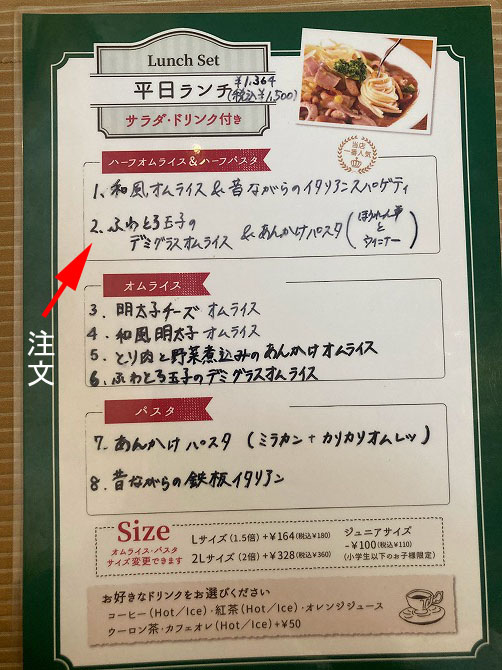 Lunch Set
平日ランチ ¥1,364
(税込¥1,500)
サラダ・ドリンク付き
当店
一番人気
ハーフオムライス&ハーフパスタ
1、和風オムライス & 昔ながらのイタリアンスパゲティ
2、ふわとろ玉子の
デミグラスオムライス & あんかけパスタ (ほうれん草とウィンナー)
注文
オムライス
3. 明太子チーズ オムライス
4. 和風明太子 オムライス
5. とり肉と野菜煮込みのあんかけオムライス
6. ふわとろ玉子のデミグラスオムライス
パスタ
7. あんかけパスタ (ミラカン+カリカリオムレツ)
8. 昔ながらの鉄板イタリアン
Size
オムライス・パスタ
サイズ変更できます
Lサイズ(1.5倍)+¥164(税込¥180)
2Lサイズ(2倍)+¥328(税込¥360)
ジュニアサイズ
-¥100(税込¥110)
(小学生以下のお子様限定)
お好きなドリンクをお選びください
コーヒー(Hot/Ice)・紅茶(Hot/Ice)・オレンジジュース
ウーロン茶・カフェオレ(Hot/Ice)+¥50